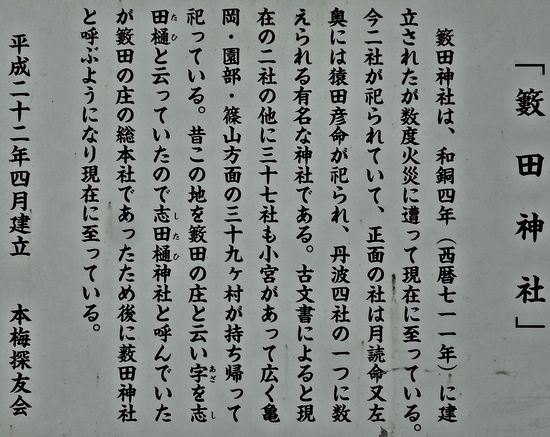 「籔田神社」
籔田神社は、和銅四年（西暦七一一年）に建
立されたが数度火災に遭って現在に至っている。
今二社が祀られていて、正面の社は月読命又左
奥には猿田彦命が祀られ、丹波四社の一つに数
えられる有名な神社である。古文書によると現
在の二社の他に三十七社も小宮があって広く亀
岡・園部・篠山方面の三十九ヶ村が持ち帰って
祀っている。昔この地を籔田の庄と云い字を志
田樋と云っていたので志田樋神社と呼んでいた
が籔田の庄の総本社であったため後に籔田神社
と呼ぶようになり現在に至っている。
平成二十二年四月建立　本梅探友会
あざ し
た ひ
し た ひ